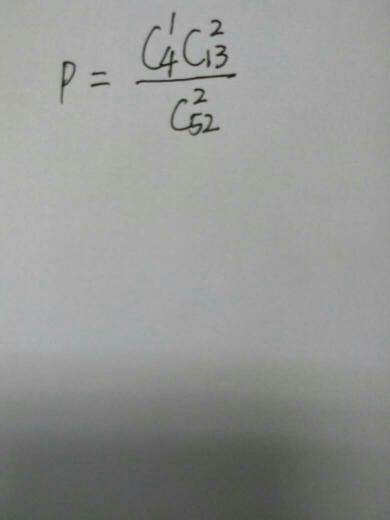 P = \frac{C_4^1 C_{13}^2}{C_{52}^2}